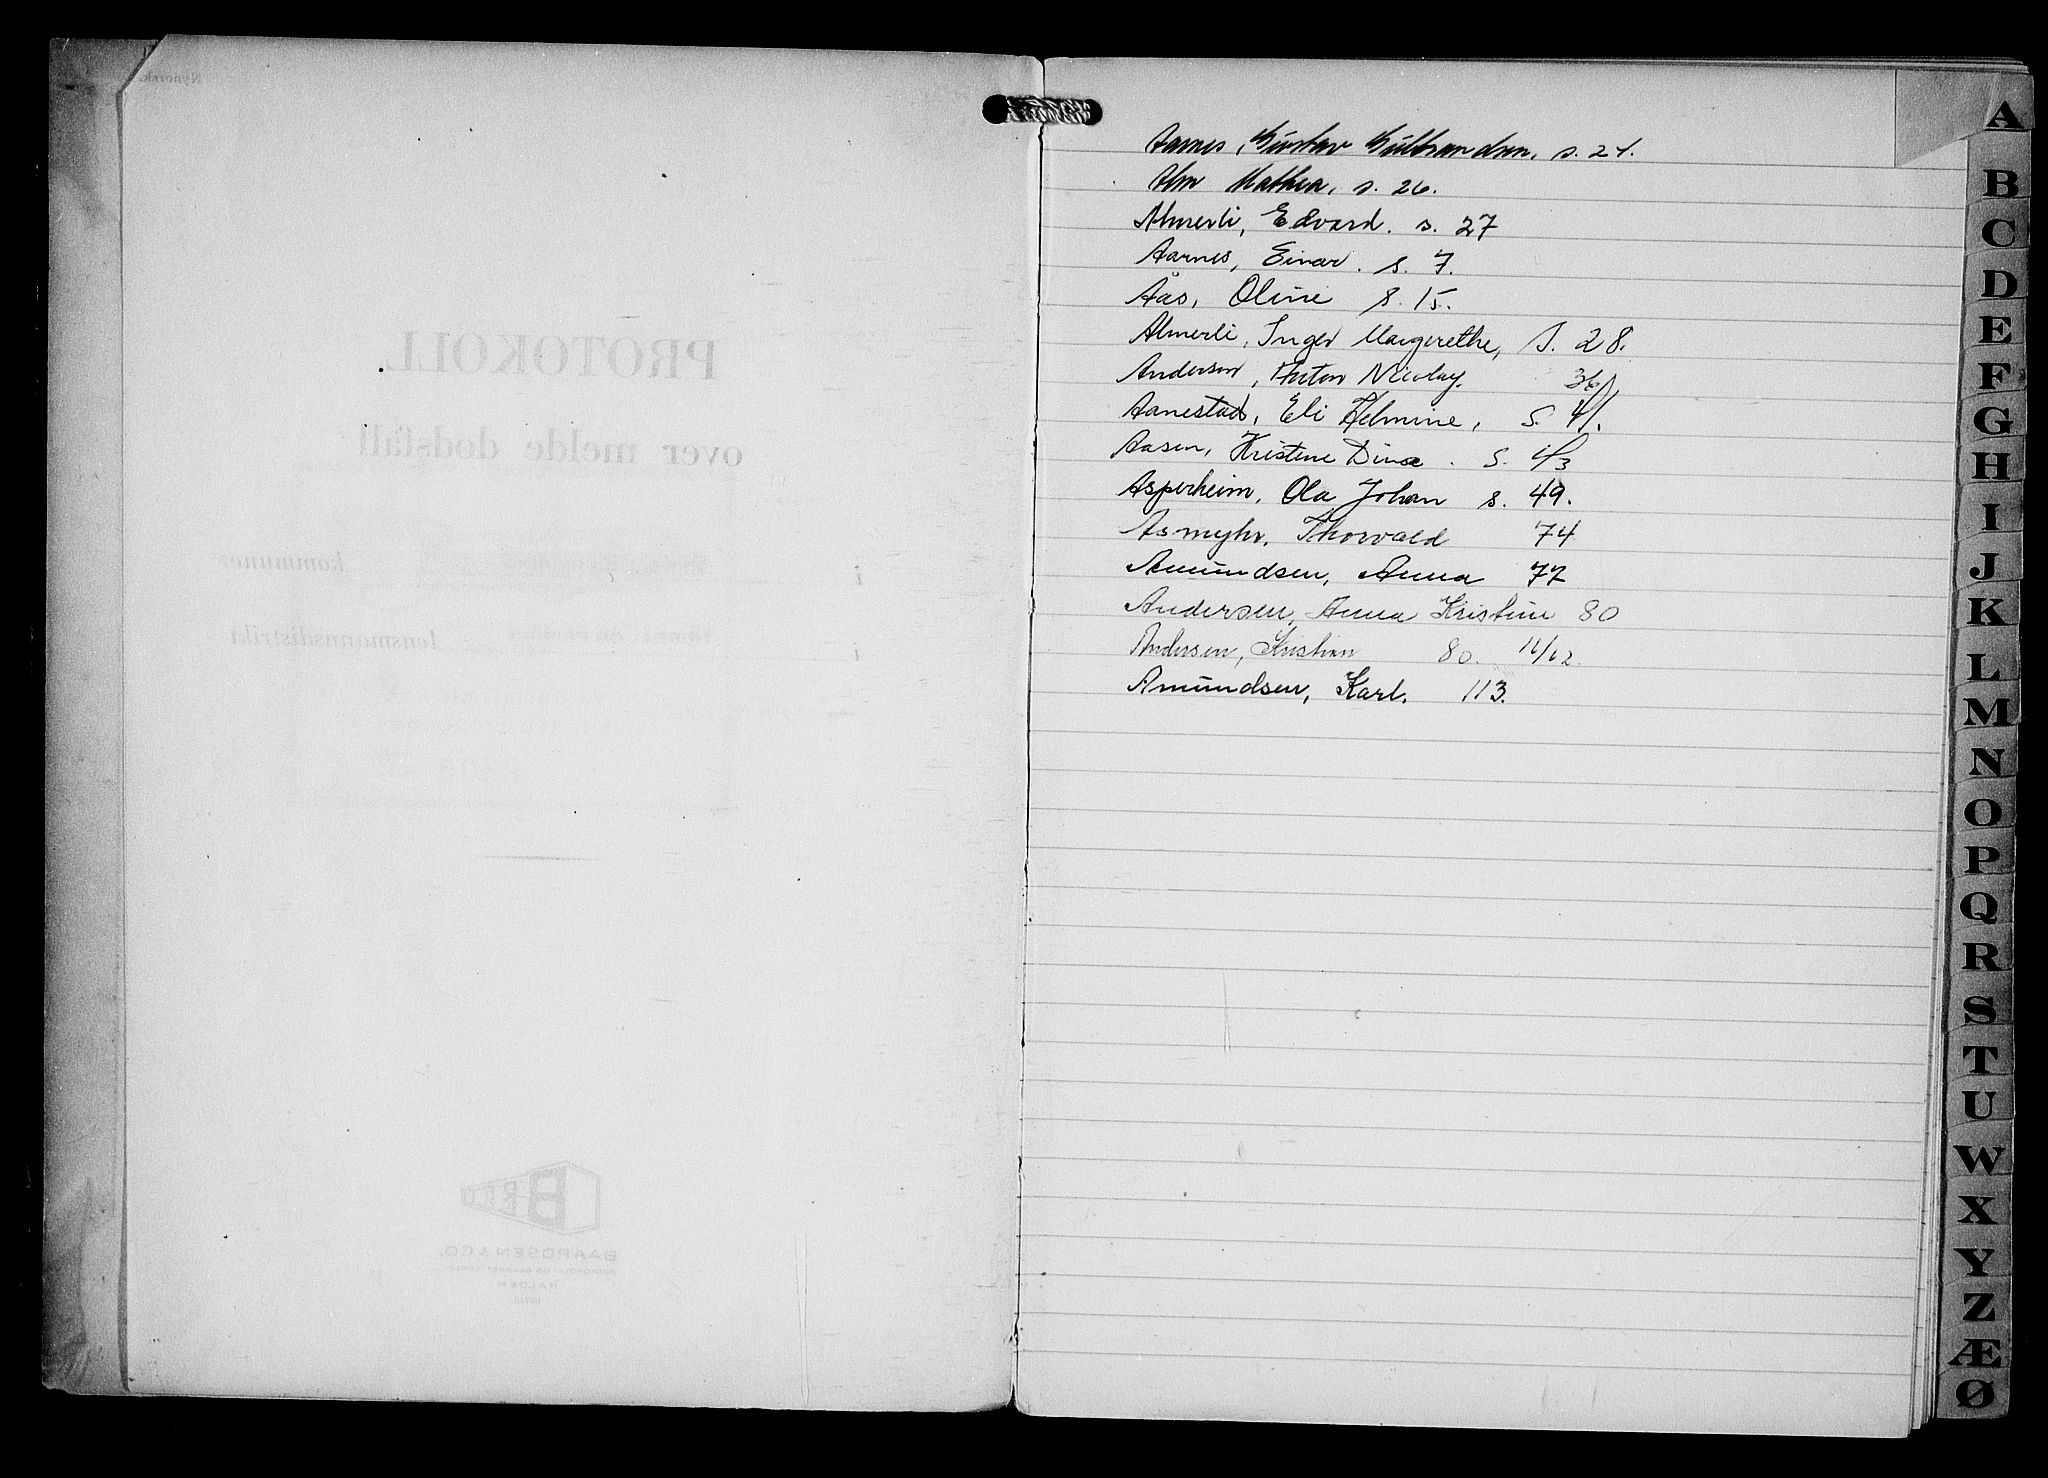 PROTOKOLL
over melde dødsfall
i kommuner
i lensmannsdistrikt
BAARDSEN & CO.
HALDEN
Aarnes, Gustav Gulbrandsen. s. 21.
Alm Mathea, s. 26.
Almerli, Edvard. s. 27
Aarnes, Einar. s. 7.
Ås, Oline s. 15.
Almerli, Inger Margrethe, S. 28.
Andersen, Anton Nicolay. 36
Aanestad, Eli Helmine, S. 41.
Aasen, Kristine Dina. S. 43
Asperheim, Ola Johan s. 49.
Asmyhr, Thorvald 74
Amundsen, Anna 77
Andersen, Anna Kristine 80
Andersen, Kristian 80. 11/62.
Amundsen, Karl. 113.
A
B
C
D
E
F
G
H
I
J
K
L
M
N
O
P
Q
R
S
T
U
W
X
Y
Z
Æ
Ø